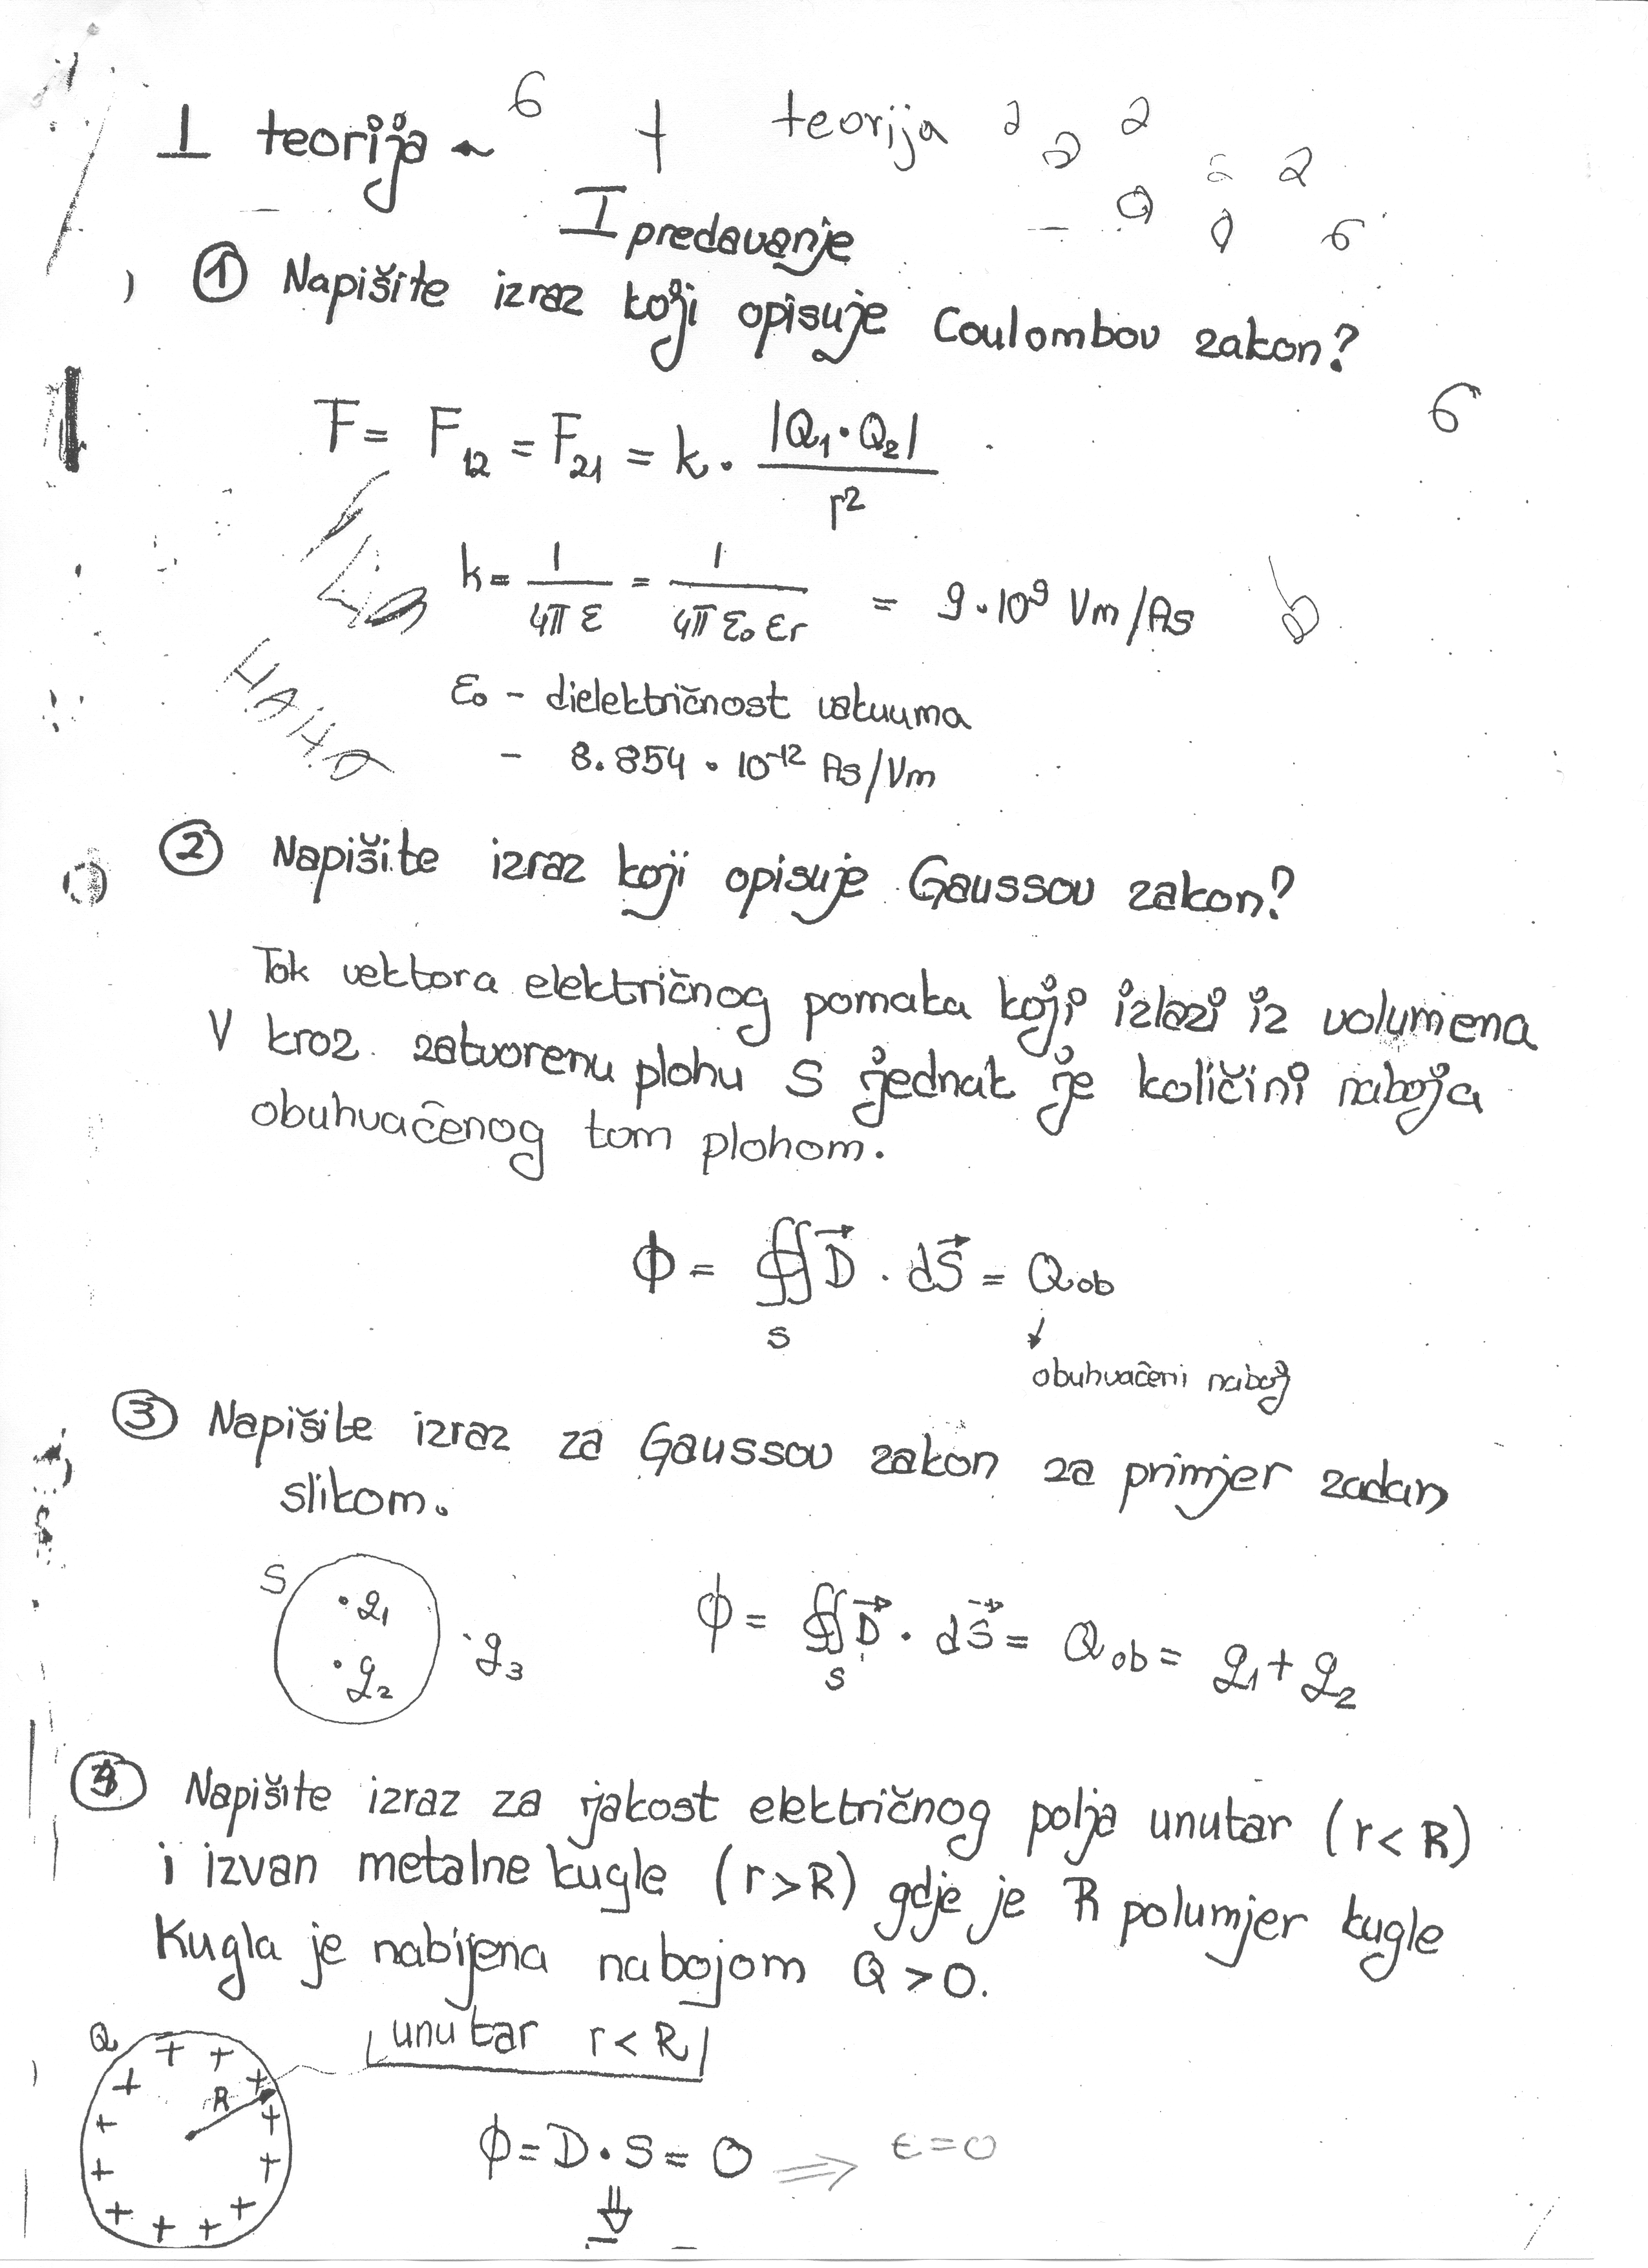 I teorija
6
+
teorija
I predavanje
① Napišite izraz koji opisuje Coulombov zakon?
6
F = F₁₂ = F₂₁ = k · |Q₁ · Q₂| / r²
k = 1 / 4π ε = 1 / 4π ε₀ εr = 9 · 10⁹ Vm/As
ε₀ - dielektričnost vakuuma
- 8.854 · 10⁻¹² As/Vm
② Napišite izraz koji opisuje Gaussov zakon?
Tok vektora električnog pomaka koji izlazi iz volumena
V kroz zatvorenu plohu S jednak je količini naboja
obuhvačenog tom plohom.
Φ = ∯ D⃗ · dS⃗ = Qob
S
obuhvačeni naboj
③ Napišite izraz za Gaussov zakon za primjer zadan
slikom.
S
q₁
q₂
q₃
Φ = ∯ D⃗ · dS⃗ = Qob = q₁ + q₂
S
④ Napišite izraz za jakost električnog polja unutar (r < R)
i izvan metalne kugle (r > R) gdje je R polumjer kugle
Kugla je nabijena nabojom Q > 0.
Q
+ + + + + + + + + + + +
R
unutar r < R
Φ = D · S = 0 ⇒ ε = 0
⇓